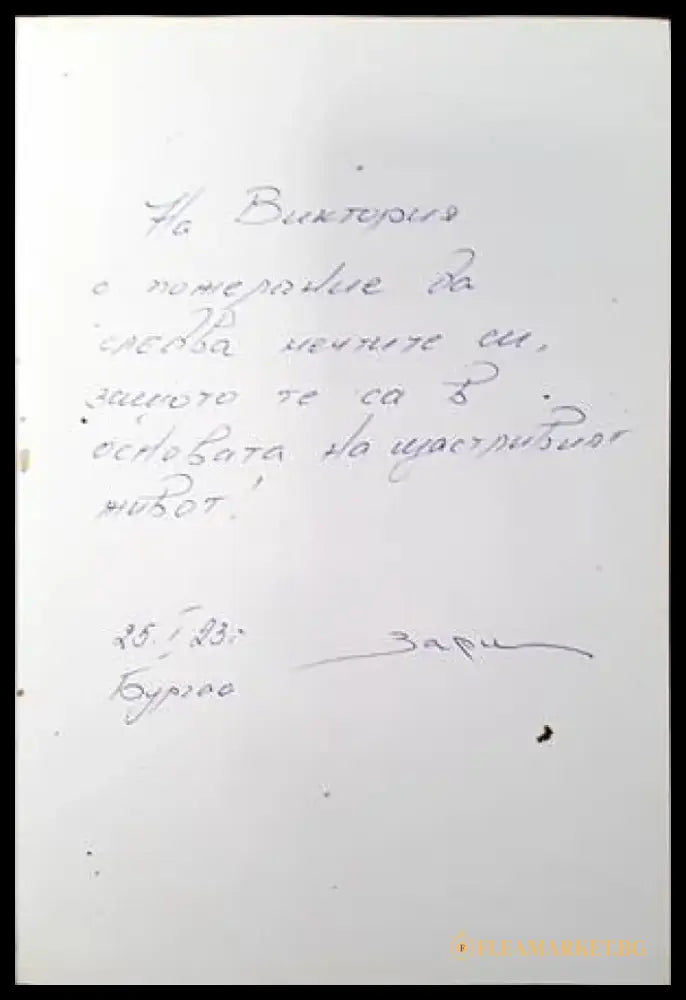 На Виктория
с пожелание да
следва мечтите си,
защото те са в
основата на щастливият
живот!
25. I 23г
Бургас
Зари
FLEAMARKET.BG